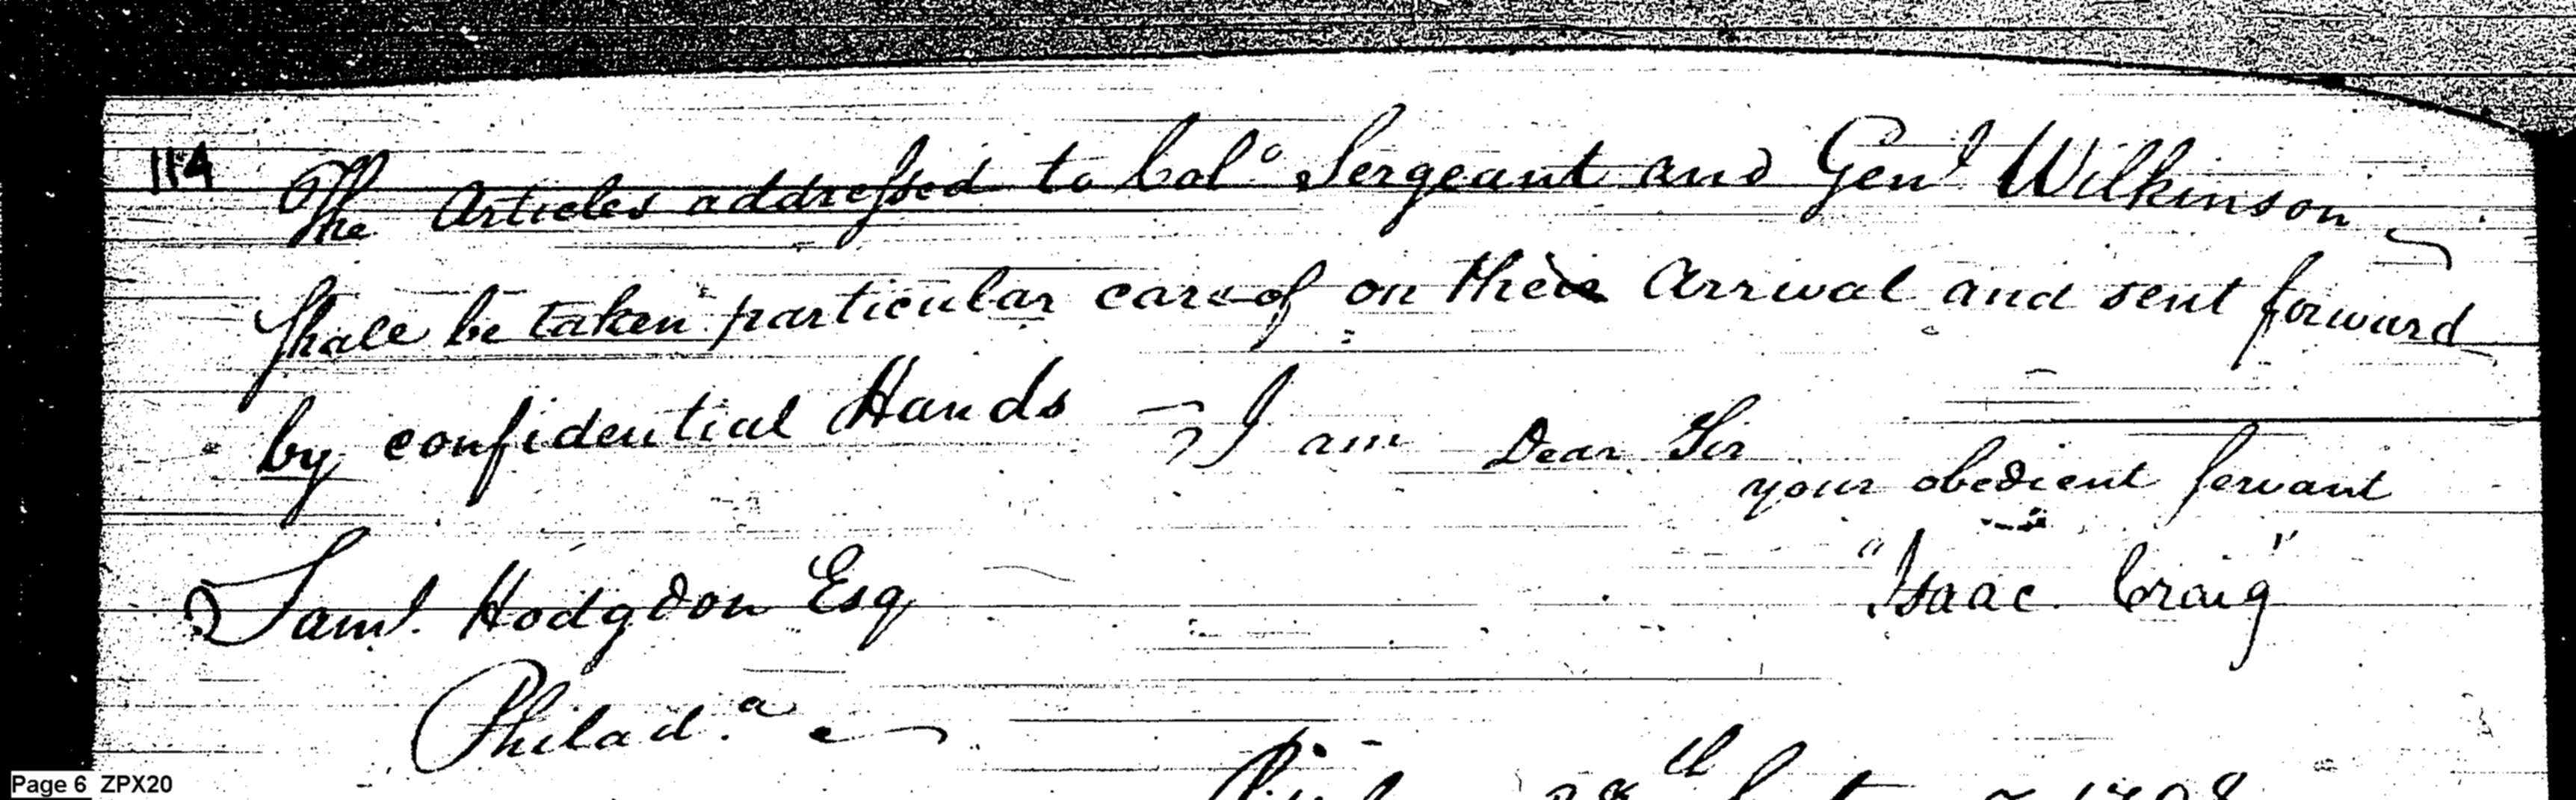 114
The Articles addressed to Colo Sergeant and Genl Wilkinson
Shall be taken particular care of on their Arrival and sent forward
by confidential Hands — I am Dear Sir
your obedient Servant
"Isaac Craig"
Saml. Hodgdon Esq
Philad.a
28th 1798
Page 6 ZPX20